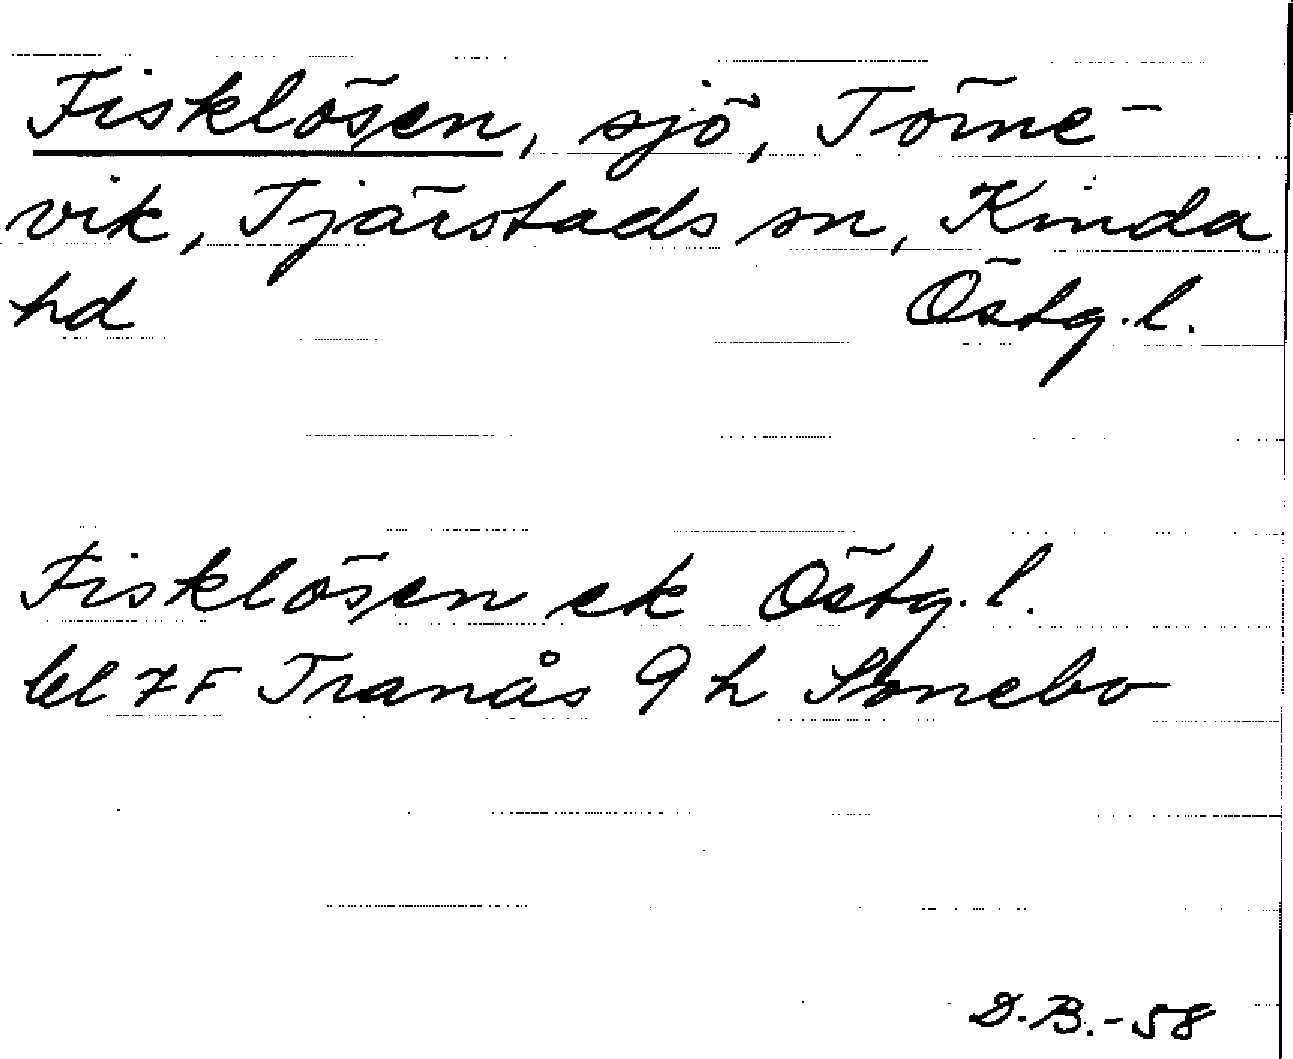 Fisklösen, sjö, Törne-
vik, Tjärstads sn, Kinda
hd Östg.l.
Fisklösen ek Östg.l.
bl 7F Tranås 9 h Sonebo
D.B.-58